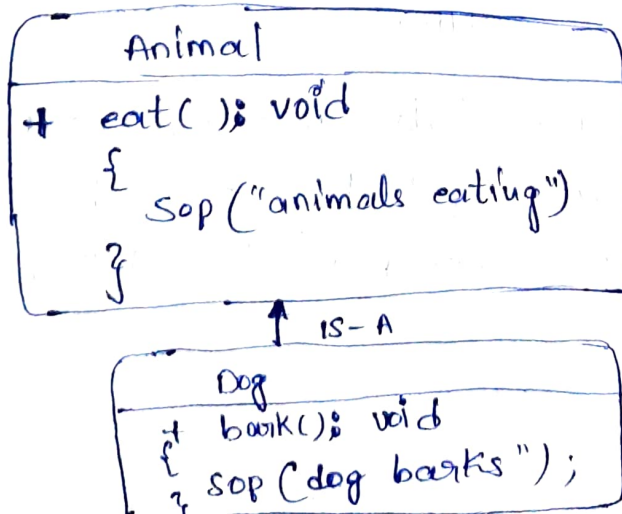 Animal
+ eat(): void
{
sop ("animals eating")
}
IS-A
Dog
+ bark(): void
{
} sop (dog barks");